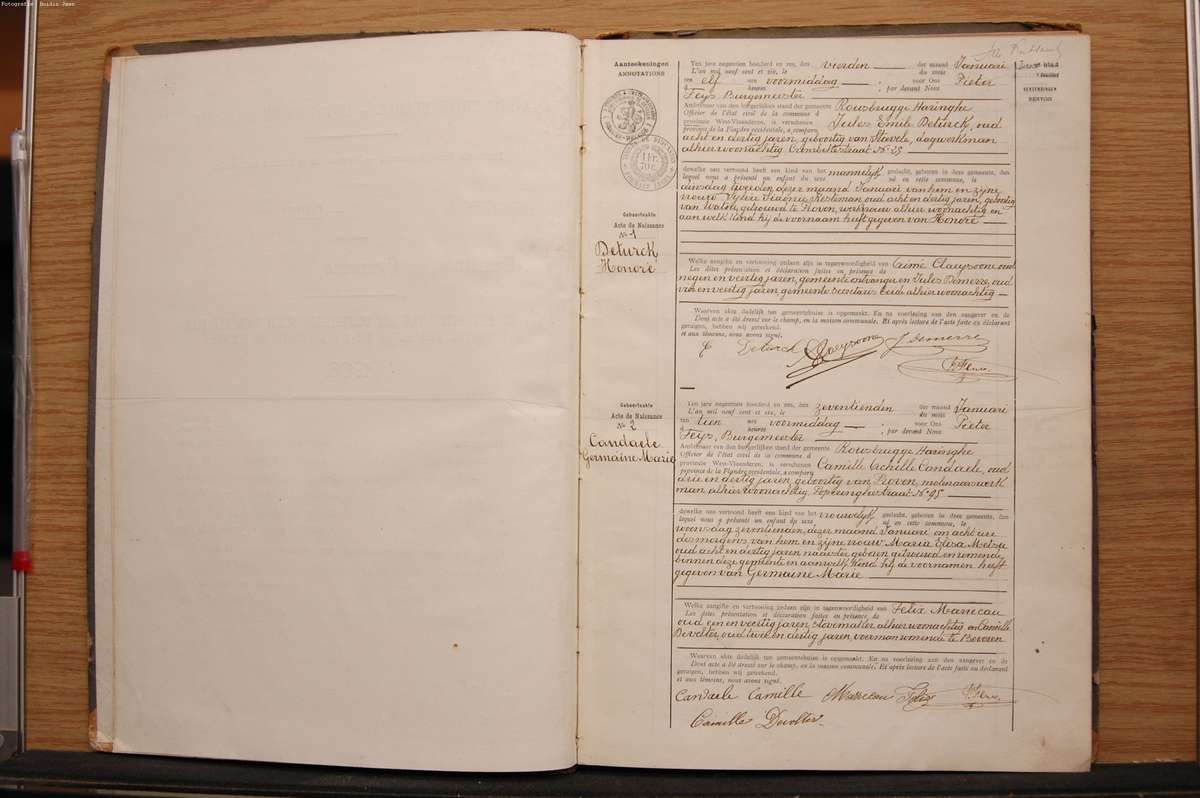 Fotografie: Boidin Jean
Aanteekeningen
ANNOTATIONS
1 Fr.
Geboorteakte
Acte de Naissance
N° 1
Deturck
Honoré
Ten jare negentien honderd en zes, den vierden der maand Januari
L'an mil neuf cent et six, le du mois
ten elf ure voormiddag ; voor Ons Pieter
à heures ; par devant Nous
Feys, Burgemeester
Ambtenaar van den burgerlijken stand der gemeente Rousbrugge Haringhe
Officier de l'état civil de la commune d
provincie West-Vlaanderen, is verschenen Jules Emile Deturck, oud
province de la Flandre occidentale, a comparu
acht en dertig jaren, geboortig van Stavele, dagwerksman
alhier woonachtig Combeltestraat N° 25
dewelke ons vertoond heeft een kind van het mannelijk geslacht, geboren in deze gemeente, den
lequel nous a présenté un enfant du sexe né en cette commune, le
dinsdag tweeden dezer maand Januari van hem en zijne
vrouw Sylvie Sidonie oud acht en dertig jaren, geboortig
van Watou, getrouwd te Proven, werkvrouw alhier woonachtig en
aan welk kind hij de voornaam heeft gegeven van Honoré
Welke aangifte en vertooning gedaan zijn in tegenwoordigheid van Aimé Claeysoone, oud
Les dites présentation et déclaration faites en présence de
negen en veertig jaren, gemeente ontvanger en Jules Demerre, oud
vier en veertig jaren, gemeente secretaris beid alhier woonachtig
Waarvan akte dadelijk ten gemeentehuize is opgemaakt. En na voorlezing aan den aangever en de
Dont acte a été dressé sur le champ, en la maison communale. Et après lecture de l'acte faite au déclarant
getuigen, hebben wij geteekend.
et aux témoins, nous avons signé.
Deturck Claeysoone J Demerre
P. Feys
VERZENDINGEN
RENVOIS
Geboorteakte
Acte de Naissance
N° 2
Candaele
Germaine Marie
Ten jare negentien honderd en zes, den zeventienden der maand Januari
L'an mil neuf cent et six, le du mois
ten tien ure voormiddag ; voor Ons Pieter
à heures ; par devant Nous
Feys, Burgemeester
Ambtenaar van den burgerlijken stand der gemeente Rousbrugge Haringhe
Officier de l'état civil de la commune d
provincie West-Vlaanderen, is verschenen Camille Achille Candaele, oud
province de la Flandre occidentale, a comparu
drie en dertig jaren, geboortig van Proven, molenaarswerk
man alhier woonachtig Poperinghestraat N° 95
dewelke ons vertoond heeft een kind van het vrouwelijk geslacht, geboren in deze gemeente, den
lequel nous a présenté un enfant du sexe né en cette commune, le
woensdag zeventienden, dezer maand Januari om acht ure
des morgens, van hem en zijne vrouw Maria Elisa Metsu
oud acht en dertig jaren, naaister geboren getrouwd en wonende
binnen deze gemeente en aan welk kind hij de voornamen heeft
gegeven van Germaine Marie
Welke aangifte en vertooning gedaan zijn in tegenwoordigheid van Felix Marrecau
Les dites présentation et déclaration faites en présence de
oud een en veertig jaren, stovemaker, alhier woonachtig en Camille
Devolter, oud twee en dertig jaren, voerman wonende te Beveren
Waarvan akte dadelijk ten gemeentehuize is opgemaakt. En na voorlezing aan den aangever en de
Dont acte a été dressé sur le champ, en la maison communale. Et après lecture de l'acte faite au déclarant
getuigen, hebben wij geteekend.
et aux témoins, nous avons signé.
Candaele Camille Marrecau Felix P. Feys
Camille Devolter